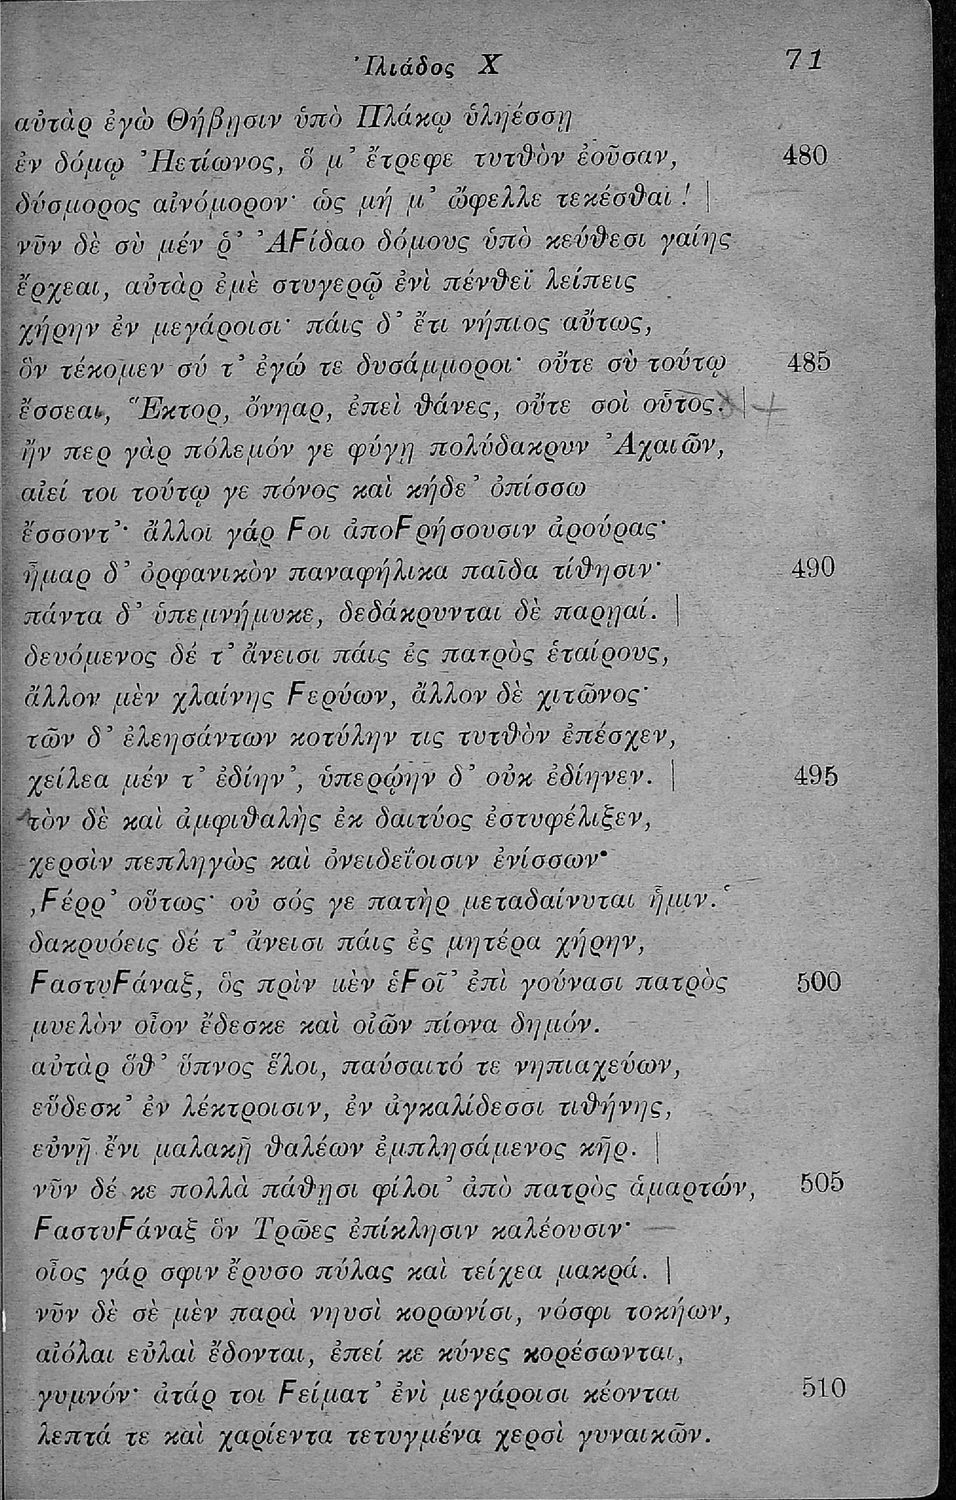 Ἰλιάδος Χ 71
αὐτὰρ ἐγὼ Θήβῃσιν ὑπὸ Πλάκῳ ὑληέσσῃ
ἐν δόμῳ Ἠετίωνος, ὅ μ' ἔτρεφε τυτθὸν ἐοῦσαν, 480
δύσμορος αἰνόμορον· ὡς μή μ' ὤφελλε τεκέσθαι! |
νῦν δὲ σὺ μέν ῥ' ἈϜίδαο δόμους ὑπὸ κεύθεσι γαίης
ἔρχεαι, αὐτὰρ ἐμὲ στυγερῷ ἐνὶ πένθεϊ λείπεις
χήρην ἐν μεγάροισι· πάις δ' ἔτι νήπιος αὔτως,
ὃν τέκομεν σύ τ' ἐγώ τε δυσάμμοροι· οὔτε σὺ τούτῳ 485
ἔσσεαι, Ἕκτορ, ὄνηαρ, ἐπεὶ θάνες, οὔτε σοὶ οὗτος. |
ἤν περ γὰρ πόλεμόν γε φύγῃ πολύδακρυν Ἀχαιῶν,
αἰεί τοι τούτῳ γε πόνος καὶ κήδε' ὀπίσσω
ἔσσοντ'· ἄλλοι γάρ Ϝοι ἀποϜρήσουσιν ἀρούρας·
ἦμαρ δ' ὀρφανικὸν παναφήλικα παῖδα τίθησιν· 490
πάντα δ' ὑπεμνήμυκε, δεδάκρυνται δὲ παρηαί. |
δευόμενος δέ τ' ἄνεισι πάις ἐς πατρὸς ἑταίρους,
ἄλλον μὲν χλαίνης Ϝερύων, ἄλλον δὲ χιτῶνος·
τῶν δ' ἐλεησάντων κοτύλην τις τυτθὸν ἐπέσχεν,
χείλεα μέν τ' ἐδίην', ὑπερῴην δ' οὐκ ἐδίηνεν. | 495
τὸν δὲ καὶ ἀμφιθαλὴς ἐκ δαιτύος ἐστυφέλιξεν,
χερσὶν πεπληγὼς καὶ ὀνειδείοισιν ἐνίσσων·
‚Ϝέρρ' οὕτως· οὐ σός γε πατὴρ μεταδαίνυται ἧμιν.‘
δακρυόεις δέ τ' ἄνεισι πάις ἐς μητέρα χήρην,
ϜαστυϜάναξ, ὃς πρὶν μὲν ἑϜοῖ' ἐπὶ γούνασι πατρὸς 500
μυελὸν οἶον ἔδεσκε καὶ οἰῶν πίονα δημόν.
αὐτὰρ ὅθ' ὕπνος ἕλοι, παύσαιτό τε νηπιαχεύων,
εὕδεσκ' ἐν λέκτροισιν, ἐν ἀγκαλίδεσσι τιθήνης,
εὐνῇ ἔνι μαλακῇ θαλέων ἐμπλησάμενος κῆρ. |
νῦν δέ κε πολλὰ πάθῃσι φίλοι' ἀπὸ πατρὸς ἁμαρτών, 505
ϜαστυϜάναξ ὃν Τρῶες ἐπίκλησιν καλέουσιν·
οἶος γάρ σφιν ἔρυσο πύλας καὶ τείχεα μακρά. |
νῦν δὲ σὲ μὲν παρὰ νηυσὶ κορωνίσι, νόσφι τοκήων,
αἰόλαι εὐλαὶ ἔδονται, ἐπεί κε κύνες κορέσωνται,
γυμνόν· ἀτάρ τοι Ϝείματ' ἐνὶ μεγάροισι κέονται 510
λεπτά τε καὶ χαρίεντα τετυγμένα χερσὶ γυναικῶν.